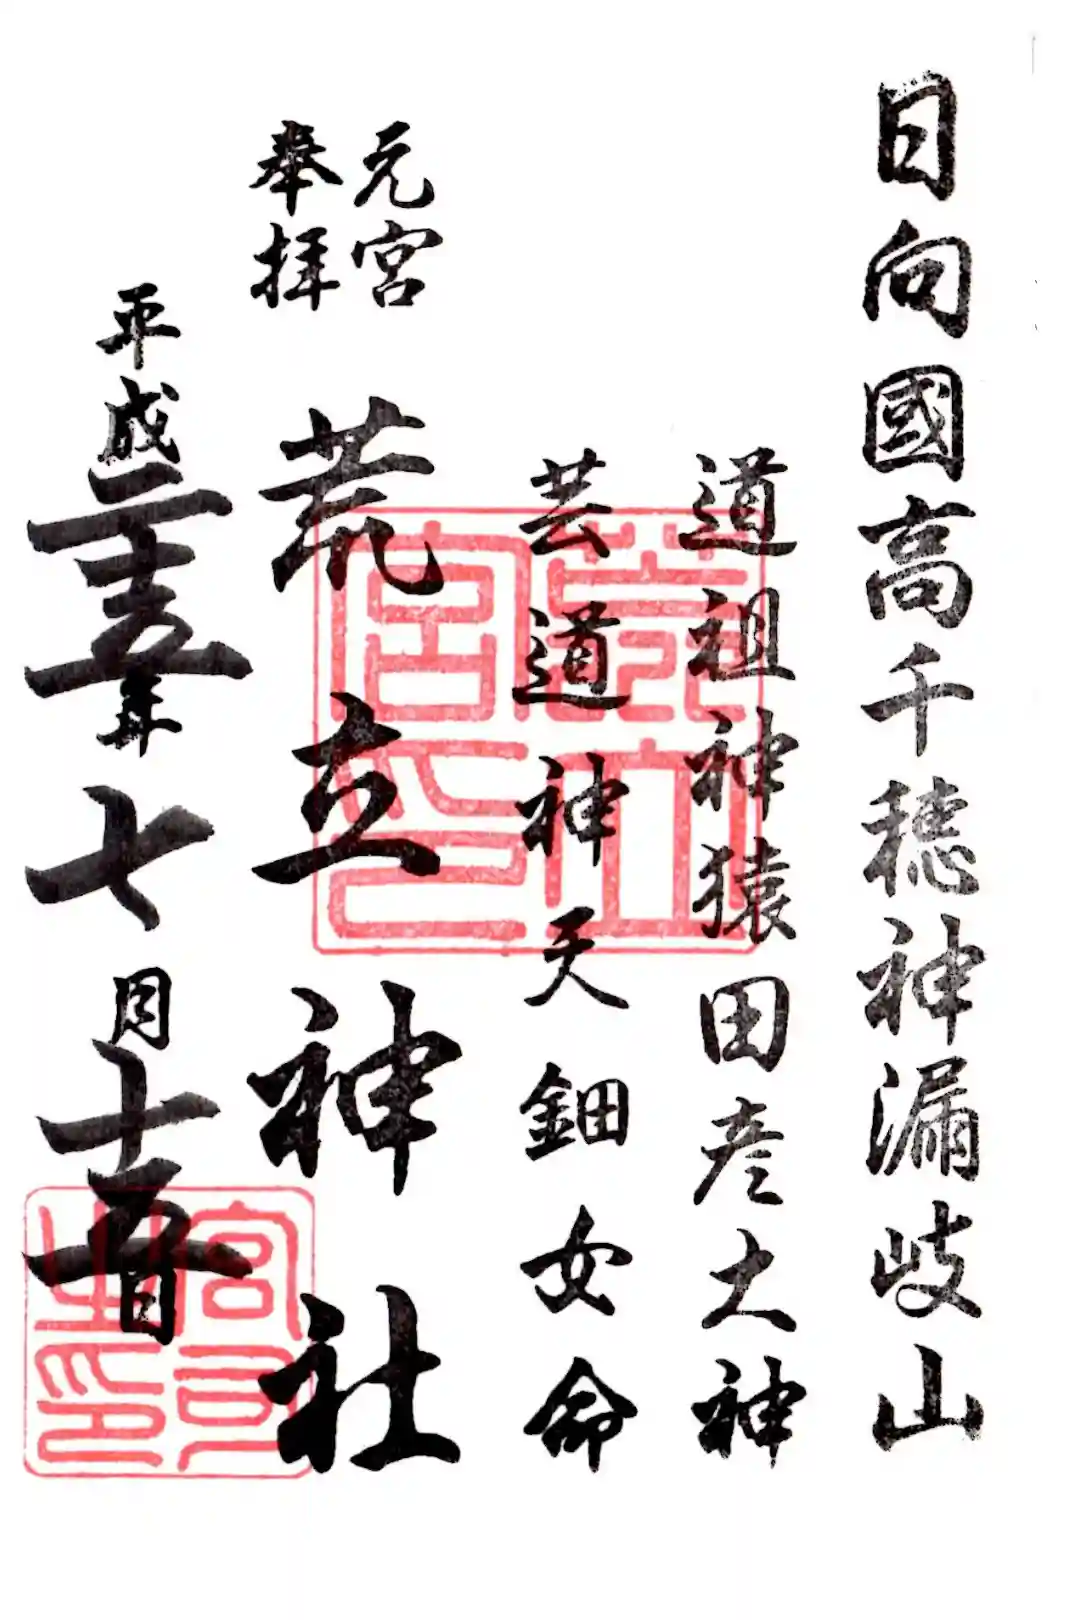 日向國高千穂神漏岐山
道祖神猿田彦大神
芸道神天鈿女命
元宮
奉拝
荒立神社
平成二十五年七月十五日
荒立宮印
宮司之印